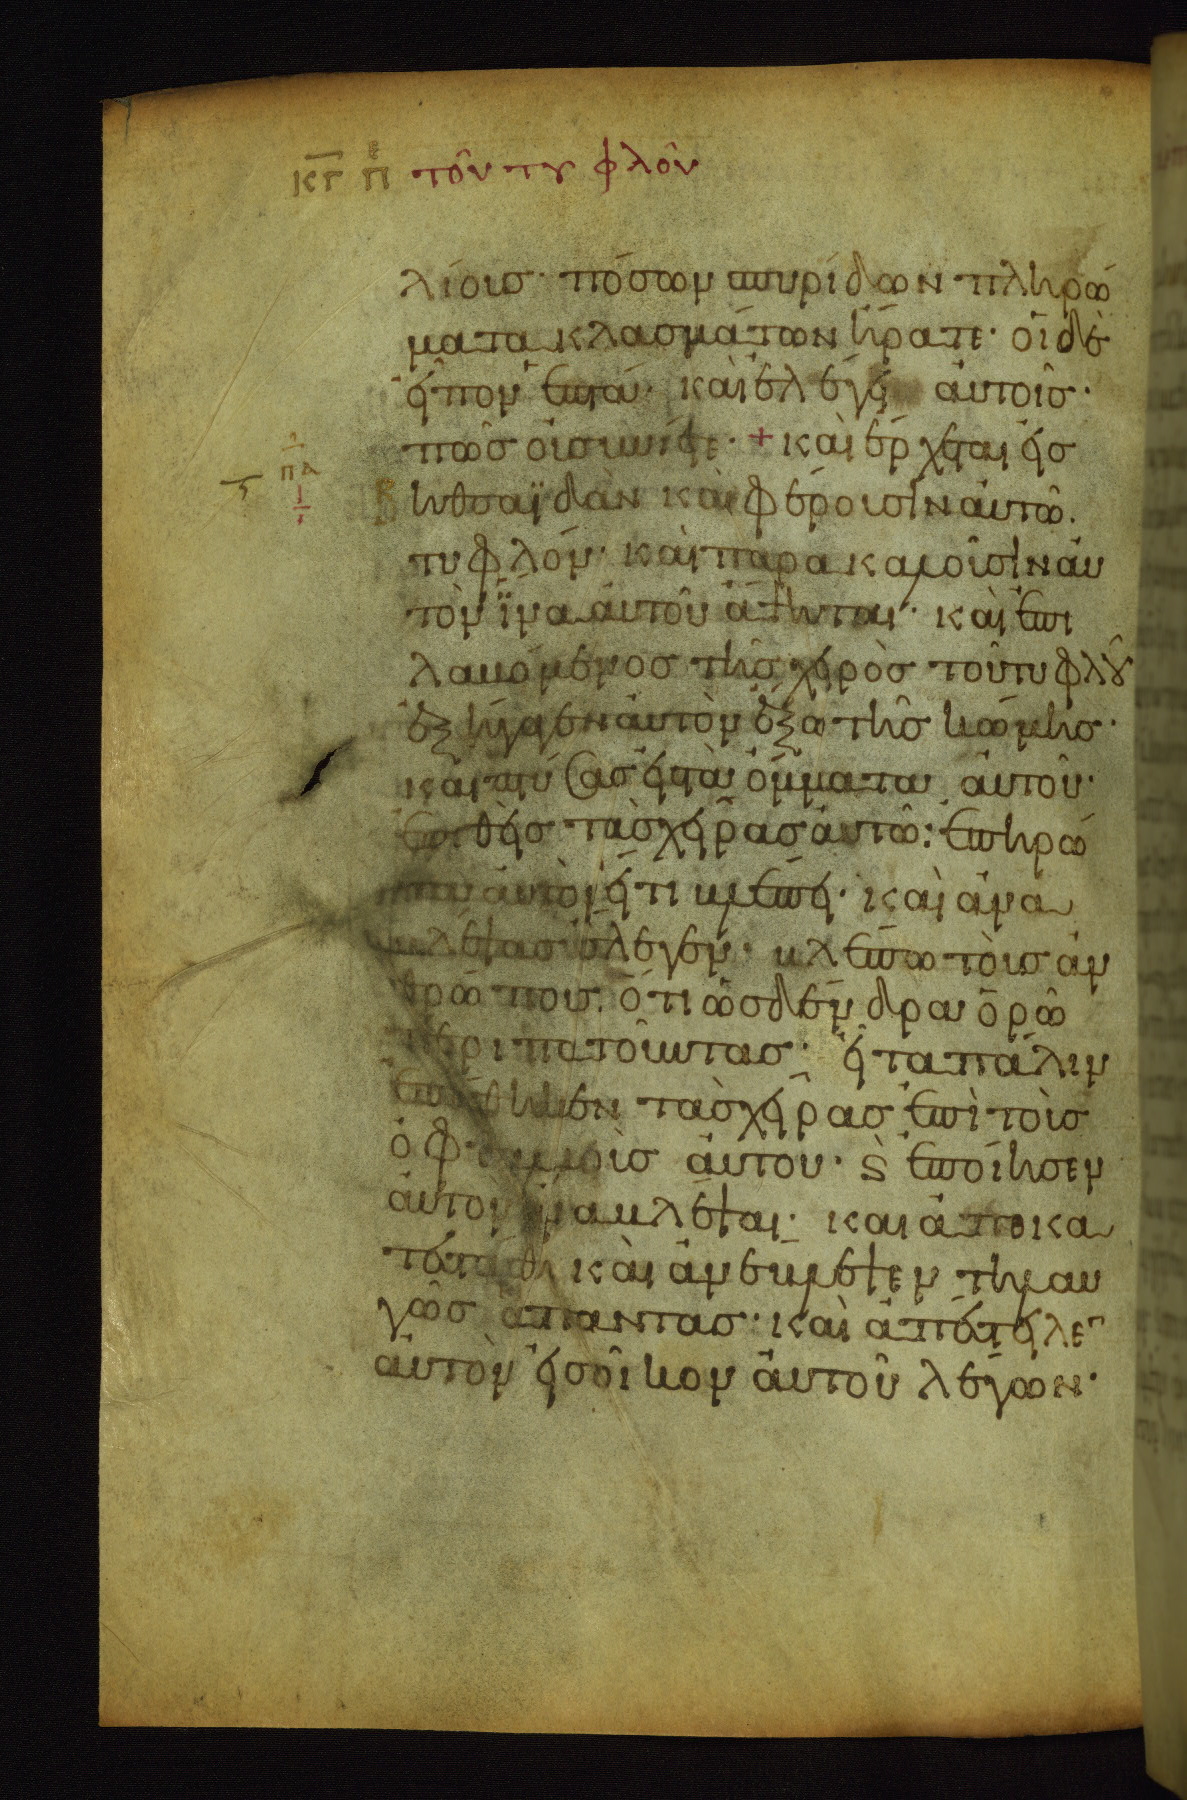 κγ π τὸν τυφλὸν
λίοις· πόσων σπυρίδων πληρώ
ματα κλασμάτων ἤρατε· οἱ δὲ
εἶπον ἑπτά· καὶ ἔλεγεν αὐτοῖς·
πῶς οὐ συνίετε· + καὶ ἔρχεται εἰς
πα
βηθσαϊδὰν καὶ φέρουσιν αὐτῶ
τυφλόν· καὶ παρακαλοῦσιν αὐ
τὸν ἵνα αὐτοῦ ἅψηται· καὶ ἐπι
λαβόμενος τῆς χειρὸς τοῦ τυφλοῦ
ἐξήγαγεν αὐτὸν ἔξω τῆς κώμης·
καὶ πτύσας εἰς τὰ ὄμματα αὐτοῦ·
ἐπιθεὶς τὰς χεῖρας αὐτῶ· ἐπηρώ
τα αὐτὸν εἴ τι βλέπει· καὶ ἀνα
βλέψας ἔλεγεν· βλέπω τοὺς ἀν
θρώπους ὅτι ὡς δένδρα ὁρῶ
περιπατοῦντας· εἶτα πάλιν
ἐπέθηκεν τὰς χεῖρας ἐπὶ τοὺς
ὀφθαλμοὺς αὐτοῦ· ϗ ἐποίησεν
αὐτὸν ἀναβλέψαι· καὶ ἀποκα
τεστάθη καὶ ἀνέβλεψεν τηλαυ
γῶς ἅπαντας· καὶ ἀπέστειλεν
αὐτὸν εἰς οἶκον αὐτοῦ λέγων·